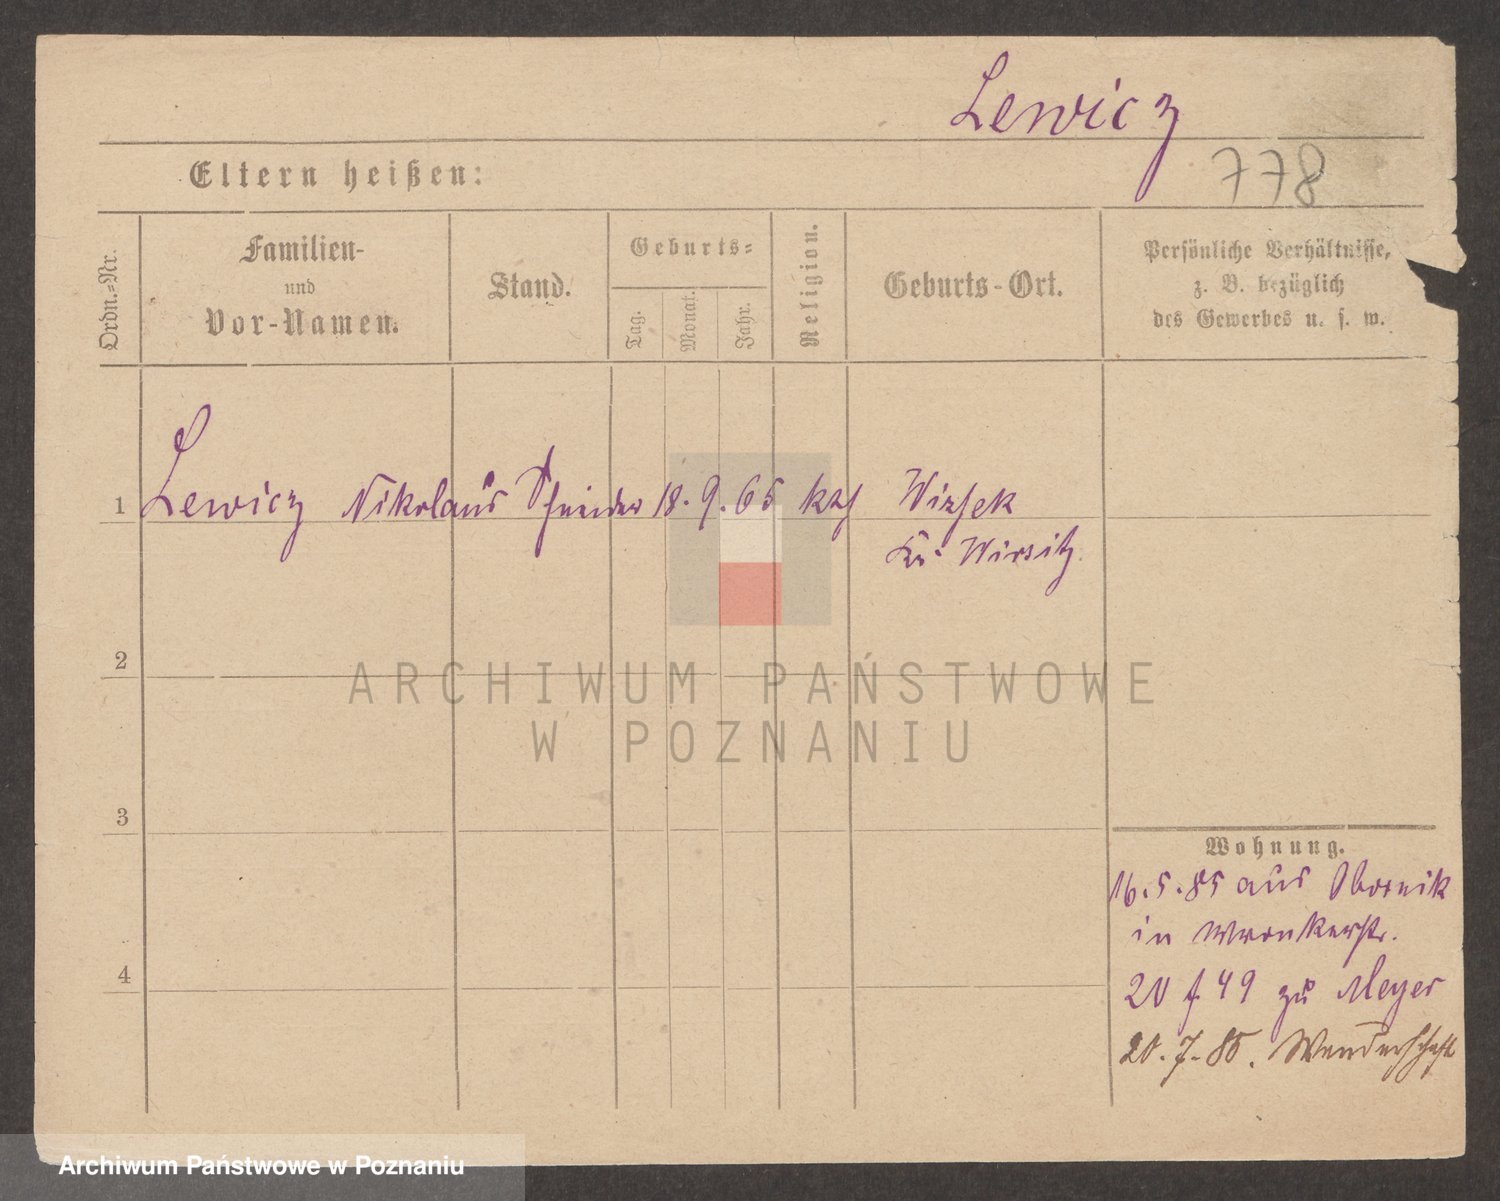 Lewicz
778
Eltern heißen:
Ordn.-Nr.
Familien-
und
Vor-Namen.
Stand.
Geburts-
Tag.
Monat.
Jahr.
Religion.
Geburts-Ort.
Persönliche Verhältnisse,
z. B. bezüglich
des Gewerbes u. s. w.
1 Lewicz Nikolaus Schneider 18. 9. 65 kath Wissek
Kr. Wirsitz
2
3
4
Wohnung.
16.5.85 aus Obornik
in Wronkerstr.
20 49 zu Meyer
20.7.85. Wanderschaft
ARCHIWUM PAŃSTWOWE
W POZNANIU
Archiwum Państwowe w Poznaniu